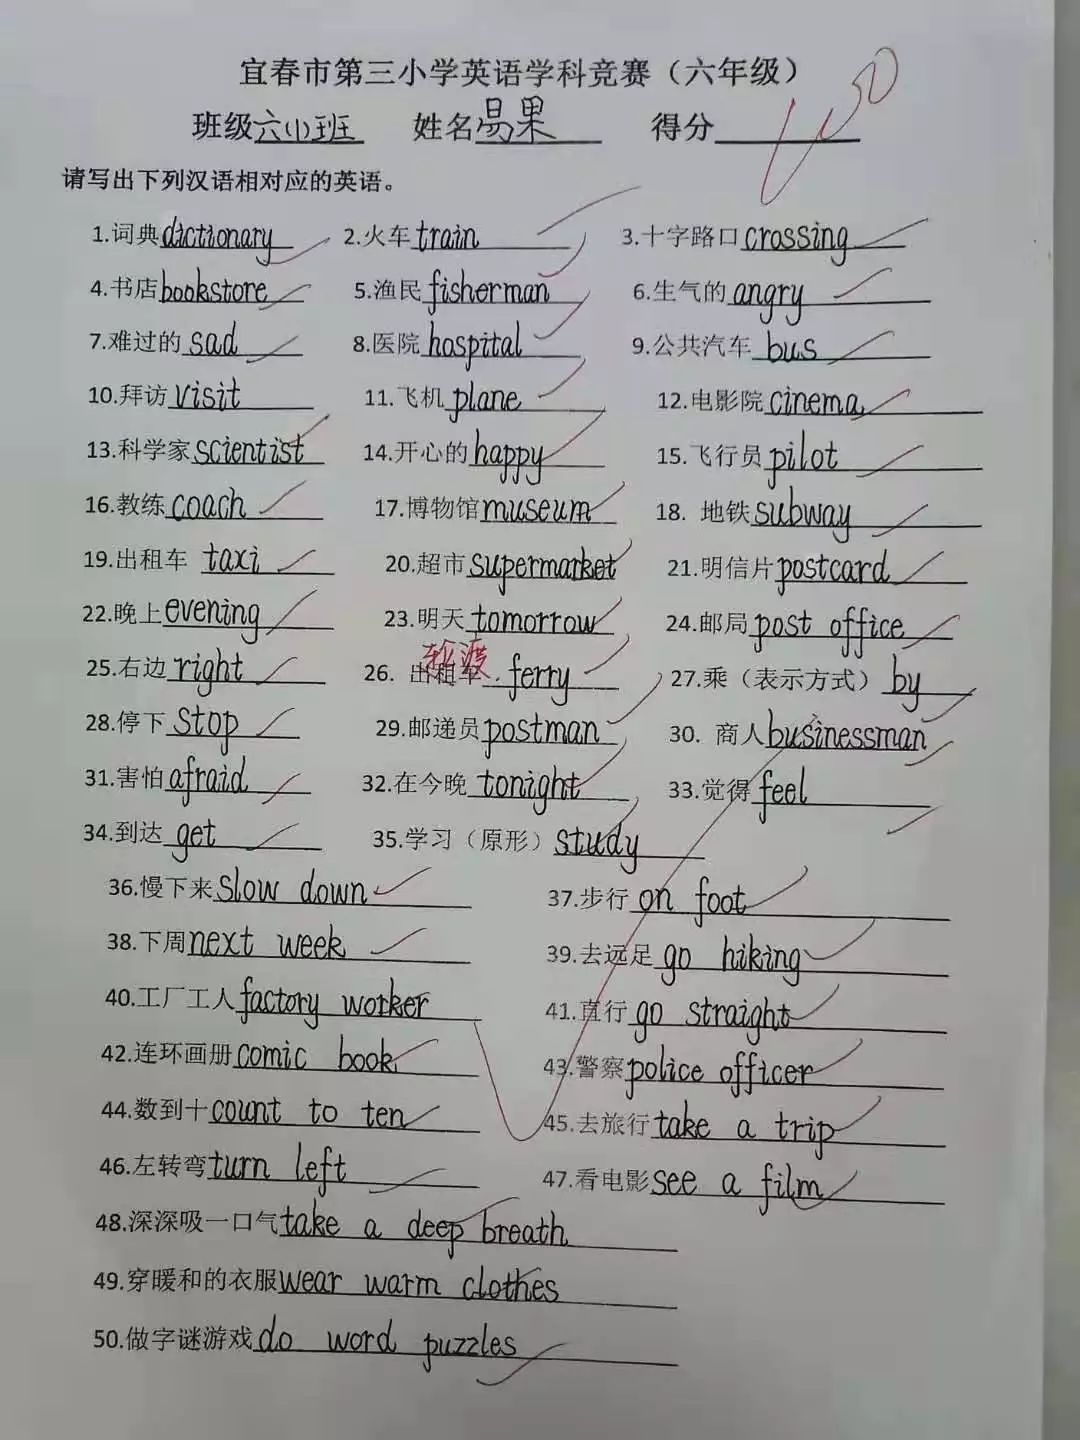 宜春市第三小学英语学科竞赛（六年级）
班级六(1)班 姓名易果 得分
请写出下列汉语相对应的英语。
1.词典dictionary 2.火车train 3.十字路口crossing
4.书店bookstore 5.渔民fisherman 6.生气的angry
7.难过的sad 8.医院hospital 9.公共汽车bus
10.拜访visit 11.飞机plane 12.电影院cinema
13.科学家scientist 14.开心的happy 15.飞行员pilot
16.教练coach 17.博物馆museum 18. 地铁subway
19.出租车 taxi 20.超市supermarket 21.明信片postcard
22.晚上evening 23.明天tomorrow 24.邮局post office
25.右边right 26. 出租车 ferry 27.乘（表示方式）by
28.停下stop 29.邮递员postman 30. 商人businessman
31.害怕afraid 32.在今晚tonight 33.觉得feel
34.到达get 35.学习（原形）study
36.慢下来slow down 37.步行on foot
38.下周next week 39.去远足go hiking
40.工厂工人factory worker 41.直行go straight
42.连环画册comic book 43.警察police officer
44.数到十count to ten 45.去旅行take a trip
46.左转弯turn left 47.看电影see a film
48.深深吸一口气take a deep breath
49.穿暖和的衣服wear warm clothes
50.做字谜游戏do word puzzles